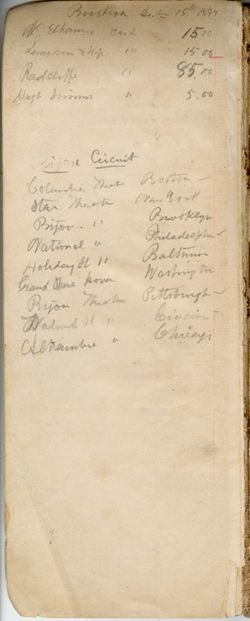 Brooklyn Sept 15th 1897
Mc Elhanny Cash 15 00
& Wife " 15.00
Radcliffe " 85 00
Hugh Simmons " 5.00
Bijou Circuit
Columbia Theatre Boston -
Star Theatre New York -
Bijou " Brooklyn
National " Philadelphia -
Holiday St " Baltimore
Grand Opera house Washington
Bijou Theatre Pittsburgh -
Walnut St " Cincinnati
Alhambra " Chicago